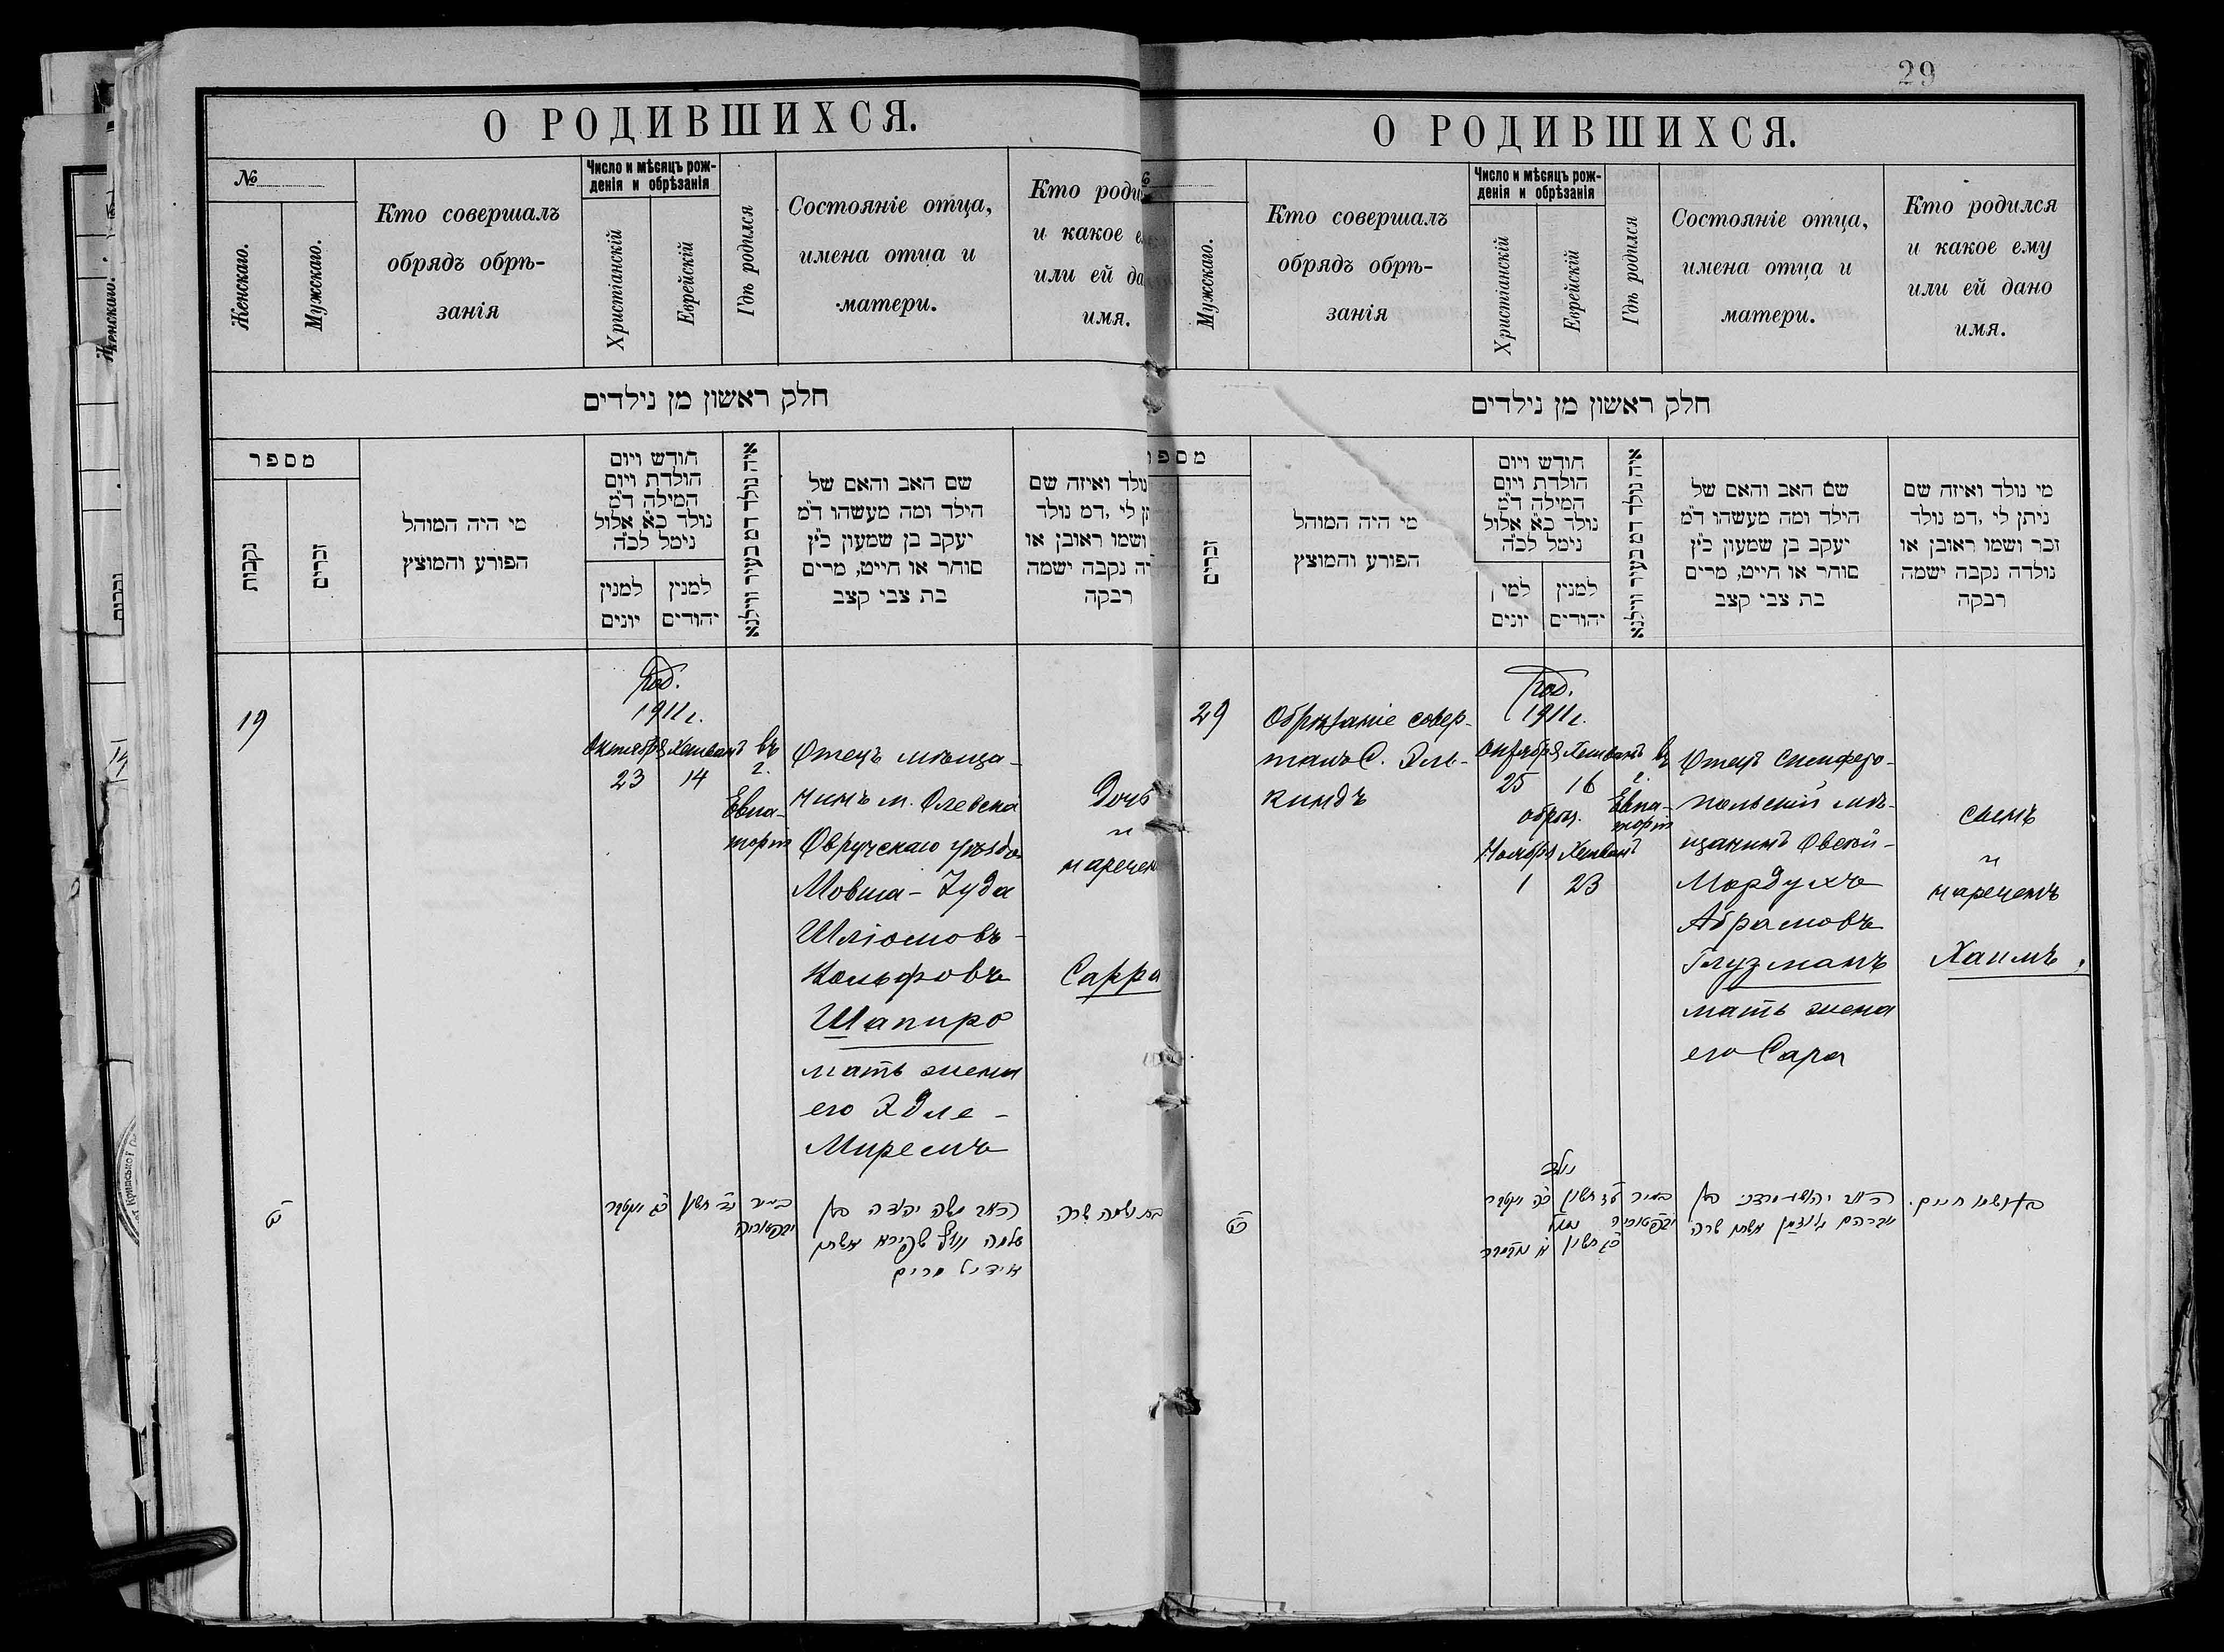 О РОДИВШИХСЯ.
№
Женскаго.
Мужскаго.
Кто совершалъ
обрядъ обрѣ-
занія
Число и мѣсяцъ рож-
денія и обрѣзанія
Христіанскій
Еврейскій
Гдѣ родился
Состояніе отца,
имена отца и
матери.
Кто роди
и какое е
или ей да
имя.
חלק ראשון מן נילדים
מספר
נקבות
זכרים
מי היה המוהל
הפורע והמוצץ
חודש ויום
הולדת ויום
המילה ד״מ
נולד כ״א אלול
נימל לכ״ה
למנין
יונים
למנין
יהודים
איה נולד דמ בעיר ווילנא
שם האב והאם של
הילד ומה מעשהו ד״מ
יעקב בן שמעון כ״ץ
סוחר או חייט, מרים
בת צבי קצב
נולד ואיזה שם
לי ,דמ נולד
ושמו ראובן או
נקבה ישמה
רבקה
19
Род.
1911 г.
Октября Хешванъ
23 14
въ
г.
Евпа-
торіи
Отецъ мѣща-
нинъ м. Олевска
Овручскаго уѣзда
Мовша - Іуда
Шліомовъ -
Вольфовъ
Шапиро
мать жена
его Эдле -
Миремъ
Дочь
и
наречен
Сарра
שלמה
מרים
שרה
29
О РОДИВШИХСЯ.
Мужскаго.
Кто совершалъ
обрядъ обрѣ-
занія
Число и мѣсяцъ рож-
денія и обрѣзанія
Христіанскій
Еврейскій
Гдѣ родился
Состояніе отца,
имена отца и
матери.
Кто родился
и какое ему
или ей дано
имя.
חלק ראשון מן נילדים
זכרים
מי היה המוהל
הפורע והמוצץ
חודש ויום
הולדת ויום
המילה ד״מ
נולד כ״א אלול
נימל לכ״ה
יונים
למנין
יהודים
איה נולד דמ בעיר ווילנא
שם האב והאם של
הילד ומה מעשהו ד״מ
יעקב בן שמעון כ״ץ
סוחר או חייט, מרים
בת צבי קצב
מי נולד ואיזה שם
ניתן לי ,דמ נולד
זכר ושמו ראובן או
נולדה נקבה ישמה
רבקה
29
Обрѣзаніе совер-
шалъ С. Эль-
киндъ
Род.
1911 г.
Октября Хешванъ
25 16
обрѣз.
Ноября Хешванъ
1 23
въ
г.
Евпа-
торіи
Отецъ Симферо-
польскій мѣ-
щанинъ Овсей-
Мордухъ
Абрамовъ
Глузманъ
мать жена
его Сара
сынъ
и
нареченъ
Хаимъ.
נולד
אברהם גלוזמן אשתו שרה
בן ושמו חיים.